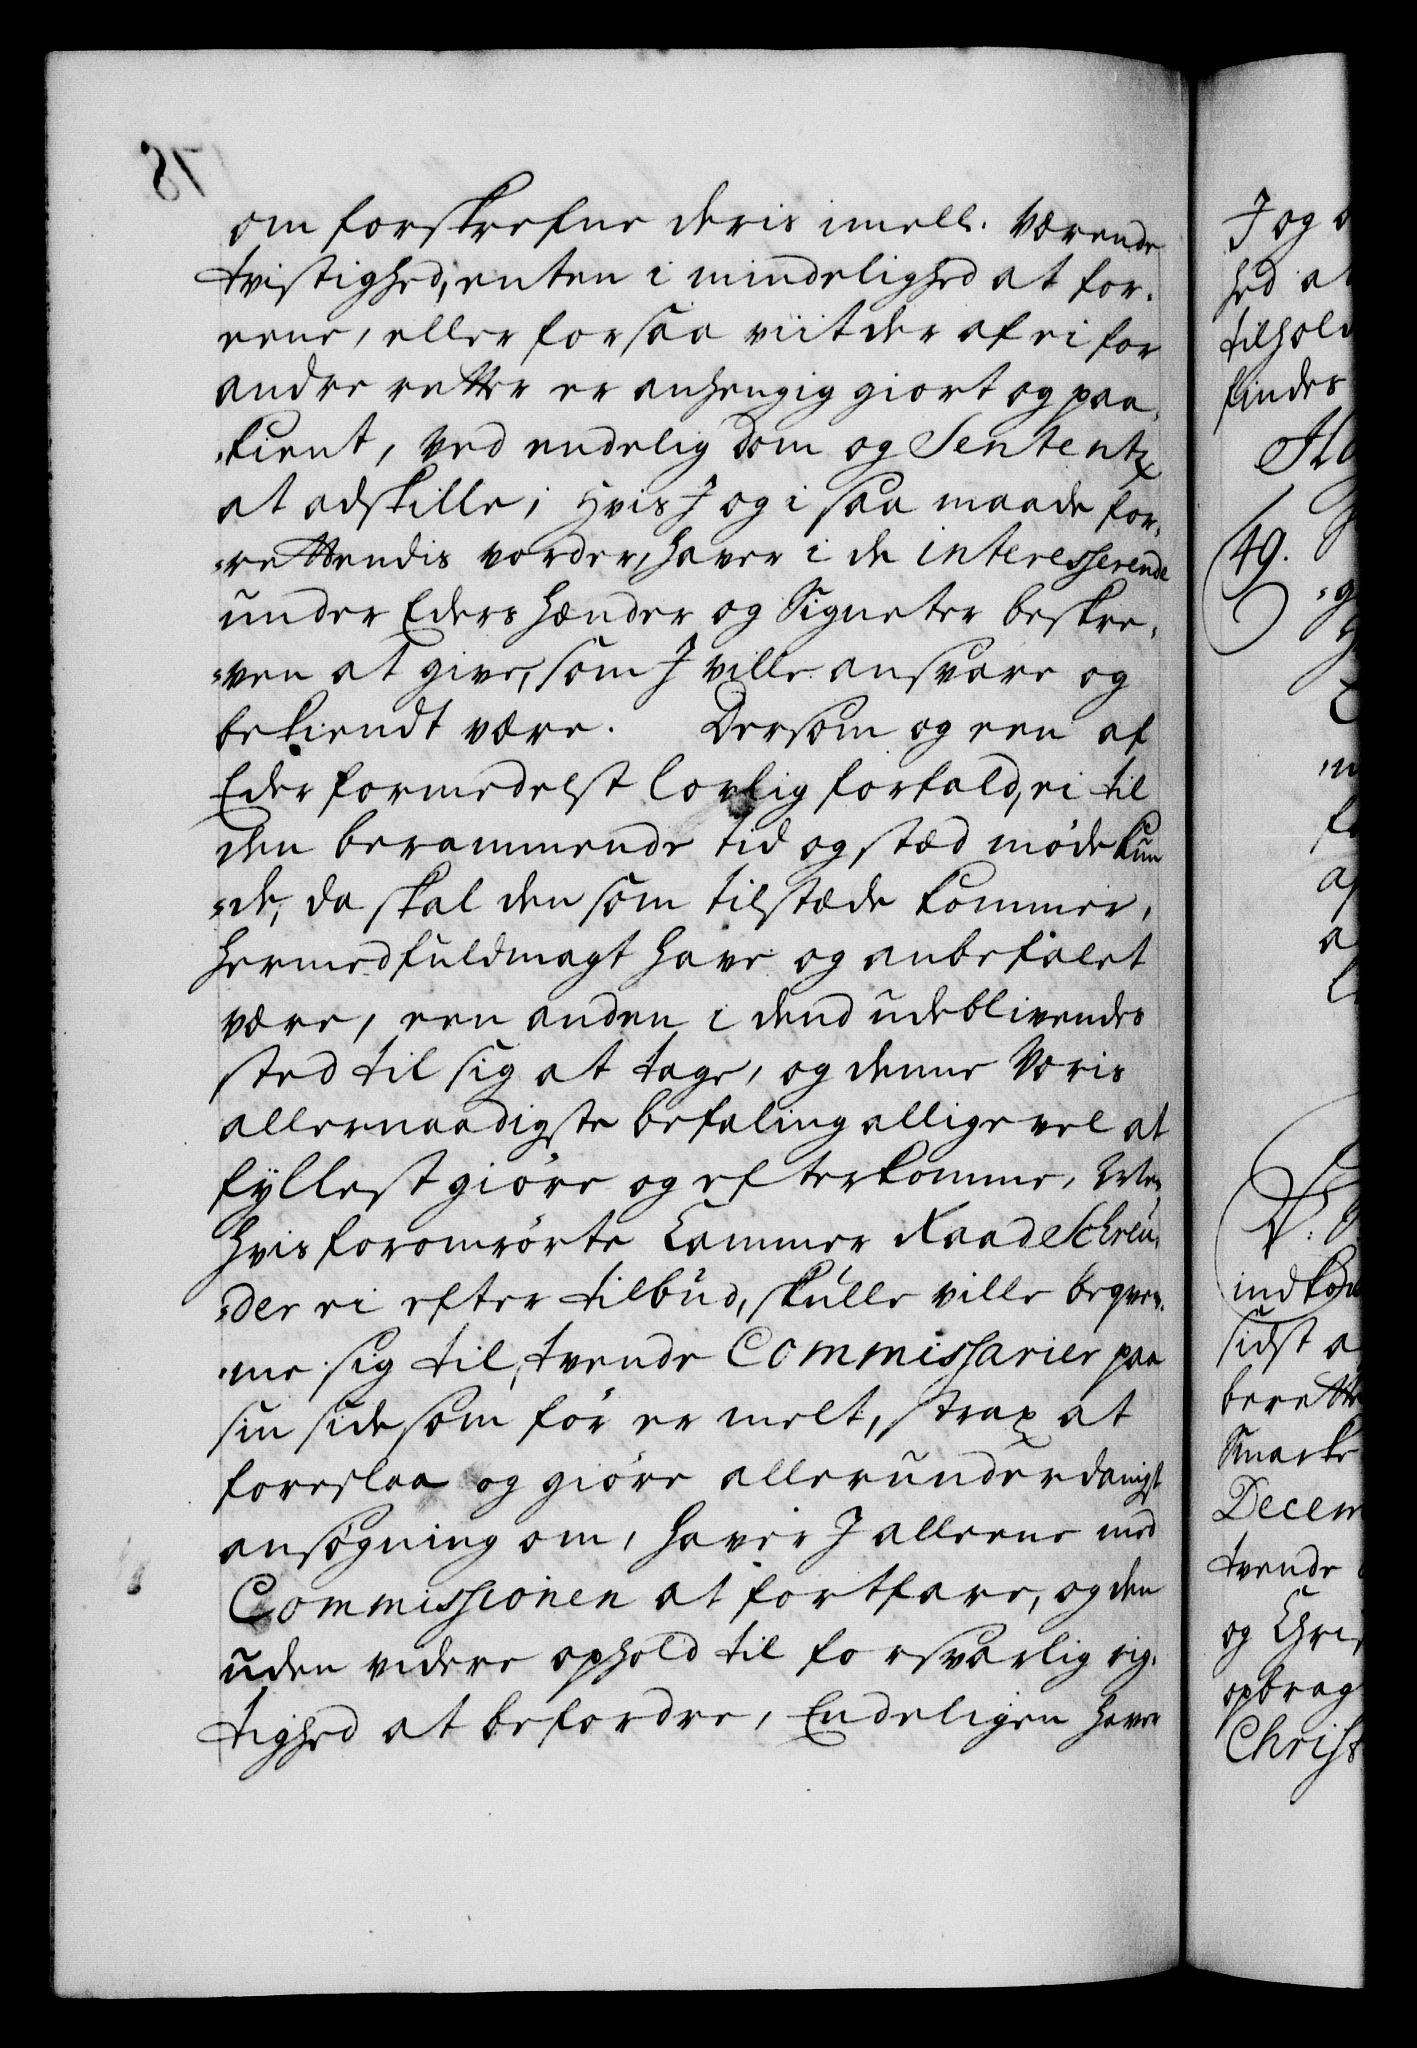 om forskrefne deris imell. Værende
tvistighed, enten i mindelighed at for-
eene, eller forsaa viit der af ei for
andre retter er anhengig giort og paa-
kient, ved endelig Dom og Sententz
at adskille; Hvis J og i saa maade for-
rettendis vorder, haver i de interesserende
under Eders Hænder og Signeter beskre-
ven at give, som J ville ansvare og
bekiendt være. Dersom og een af
Eder formedelst lovlig forfald, ei til
den berammende tid og stæd møde kun-
de, da skal den som tilstæde kommer,
hermed fuldmagt have og anbefalet
være, een anden i dend udeblivendes
sted til sig at tage, og denne Voris
allernaadigste befaling alligevel at
fyllestgiøre og efterkomme, Men
hvis foromrørte Cammer Raad Schreu-
der ei efter tilbud, skulle ville beqvem-
me sig til, tvende Commissarier paa
sin side som før er melt, strax at
foreslaa og giøre allerunderdanigst
ansøgning om, haver J alleene med
Commissionen at fortfare, og den
uden videre ophold til forsvarlig rig-
tighed at befordre, Endeligen haver
J og
hed at
tilhold
findes
49.
indkom
sidst a
berette
Decem
tvende
og Chri
opbrag
Christ